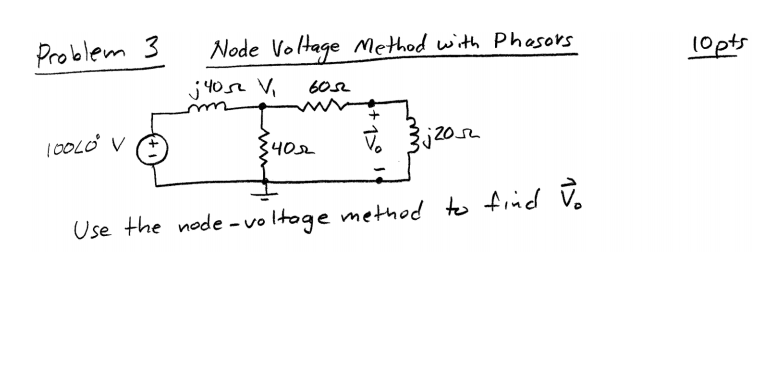 Problem 3 Node Voltage Method with Phasors 10pts
j40Ω V₁ 60Ω
+
100∠0° V + − 40Ω V⃗₀ j20Ω
−
Use the node-voltage method to find V⃗₀